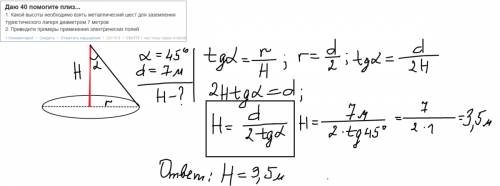 Даю 40 помогите плиз...
1. Какой высоты необходимо взять металлический шест для заземления
туристического лагеря диаметром 7 метров
2. Приведите примеры применения электрических полей
H
α
r
α = 45°
d = 7 м
H - ?
tgα = r/H ; r = d/2 ; tgα = d/2H
2Htgα = d;
H = d/2tgα
H = 7м/2·tg45° = 7/2·1 = 3,5 м
Ответ: H = 3,5 м